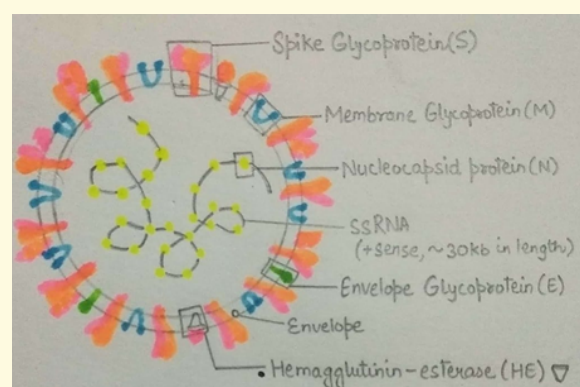 Spike Glycoprotein(S)
Membrane Glycoprotein (M)
Nucleocapsid protein(N)
SSRNA
(+sense, ~30kb in length)
Envelope Glycoprotein(E)
Envelope
Hemagglutinin-esterase (HE)